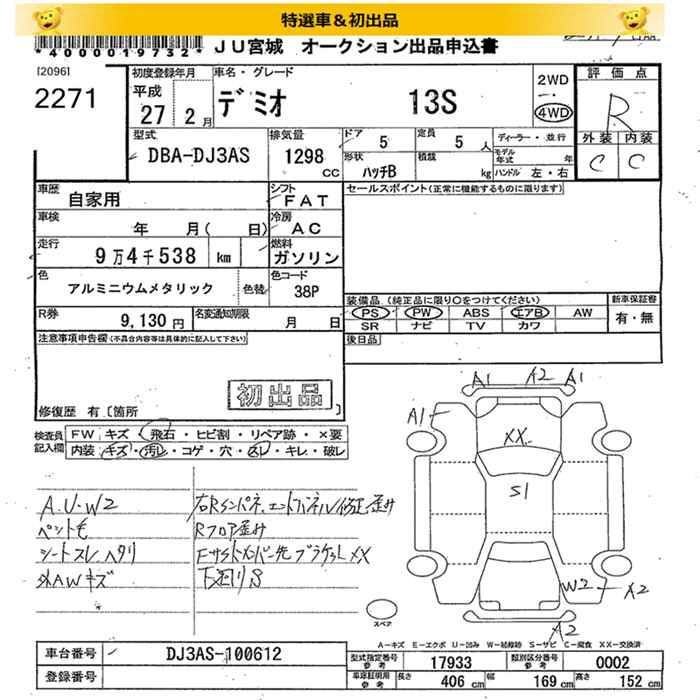 特選車＆初出品
*4000019732*
JU宮城 オークション出品申込書
[2096]
2271
初度登録年月
平成
27 2月
車名・グレード
デミオ 13S
2WD
4WD
評価点
R
外装 内装
C C
型式
DBA-DJ3AS
排気量
1298
CC
ドア
5
定員
5人
ディーラー・並行
形状
ハッチB
積載
kg
モデル年式 年
ハンドル 左・右
車歴
自家用
シフト
FAT
セールスポイント(正常に機能するものに限ります)
車検
年 月( 日)
冷房
AC
走行
9万4千538 km
燃料
ガソリン
色
アルミニウムメタリック
色替
色コード
38P
R券
9,130円
名変通知期限
月 日
装備品 (純正品に限り○をつけてください)
新車保証書
PS PW ABS エアB AW
有・無
SR ナビ TV カワ
注意事項申告欄(不具合内容等は具体的に記入して下さい)
後日品
初出品
修復歴 有〔箇所
検査員記入欄
FW キズ・飛石・ヒビ割・リペア跡・×要
内装 キズ・汚レ・コゲ・穴・スレ・キレ・破レ
A.U.W2
ペット毛
シートスレ ヘタリ
外AWキズ
右Rインパネ、エンドパネル修正歪み
Rフロア歪み
FサイドメンバーXX
下廻りS
A1 A2 A1
A1
XX
S1
W2 X2
A2
スペア
A－キズ E－エクボ U－凹み W－補修跡 S－サビ C－腐食 XX－交換済
車台番号
DJ3AS-100612
登録番号
型式指定番号
参考
17933
類別区分番号
参考
0002
車庫証明用
参考
長さ
406 cm
幅
169 cm
高さ
152 cm